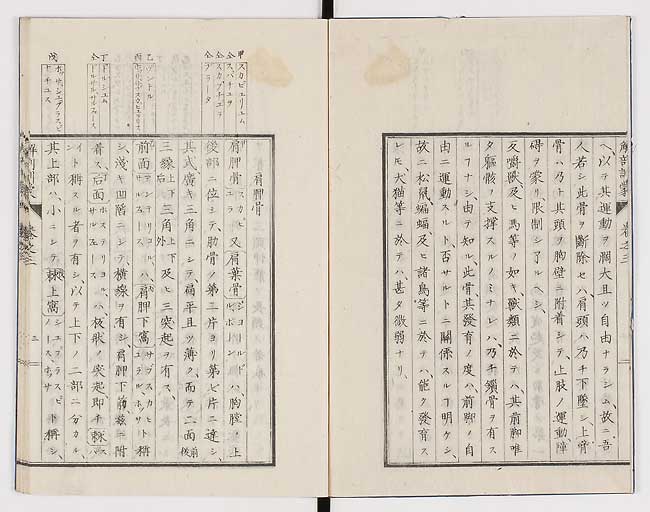 ヘ、以テ其運動ヲ濶大且ツ自由ナラシム、故ニ吾
人若シ此骨ヲ斷除セハ、肩頭ハ乃チ下墜シ、上膊
骨ハ乃ト其頭ヲ胸壁ニ附着シテ、上肢ノ運動、障
碍ヲ蒙リ限制シ了ルヘシ、
又嚼獸及ヒ馬等ノ如キ獸類ニ於テハ、其前脚唯
タ軀骸ヲ支撑スルノミナレハ、乃チ鎖骨ヲ有ス
ルフナシ由テ知ル、此骨其發育ノ度ハ前脚ノ自
由ニ運動スルト、否サルトニ關係スルフ明ケシ、
故ニ松鼠、蝙蝠及ヒ諸鳥等ニ於テハ、能ク發育ス
レモ、犬猫等ニ於テハ甚タ微弱ナリ、
解剖訓蒙
卷之三
肩胛骨
肩胛骨 又肩葉骨 ハ、胸膛ノ上
後部ニ位シテ、肋骨ノ第二片ヨリ第七片ニ達シ、
其式、廣キ三角ニシテ、扁平且ツ薄ク、而テ二面 前後
三緣 上下後 三角 上下外 及ヒ三突起ヲ有ス、
前面 ハ、肩胛下窩 ト稱
シ、淺キ凹階ニシテ、橫線ヲ有シ、肩胛下筋茲ニ附
着ス、後面 ハ、板狀ノ突起即チ棘
ト稱スル者ヲ有シ、以テ上下ノ二部ニ分カル、
其上部ハ、小ニシテ、棘上窩 ト稱シ、
解剖訓蒙
卷之三
甲 スカピュリエム
仝 スパチュラ
仝 スカプトュラ
仝 テラータ
乙 ソントル
丁 ドルシュム
仝
戊